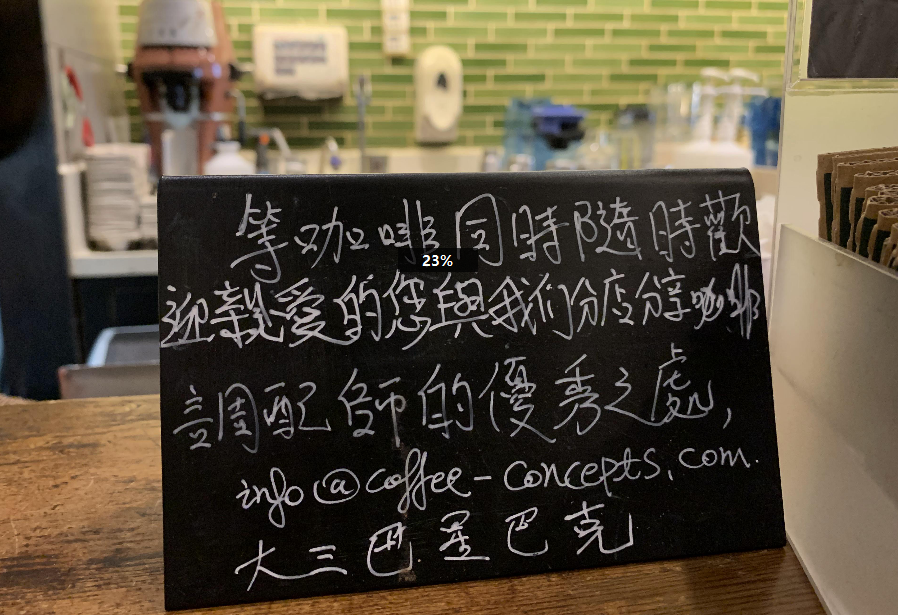 等咖啡同時隨時歡
迎親愛的您與我们分店分享咖啡
調配師的優秀之處,
info@coffee-concepts.com.
大三巴星巴克
23%